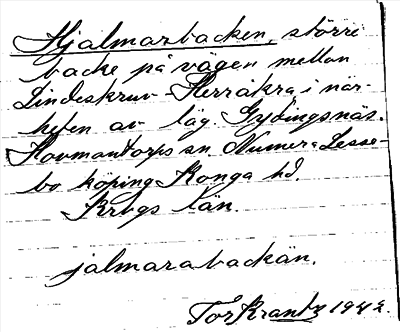 Hjalmarbacken, större
backe på vägen mellan
Lindeskruv - Herråkra, i när-
heten av läg. Gydingsnäs.
Hovmantorps sn. Numera Lesse-
bo köping Konga hd.
Krbgs län.
jalmarabackän.
Tor Krantz 1942.